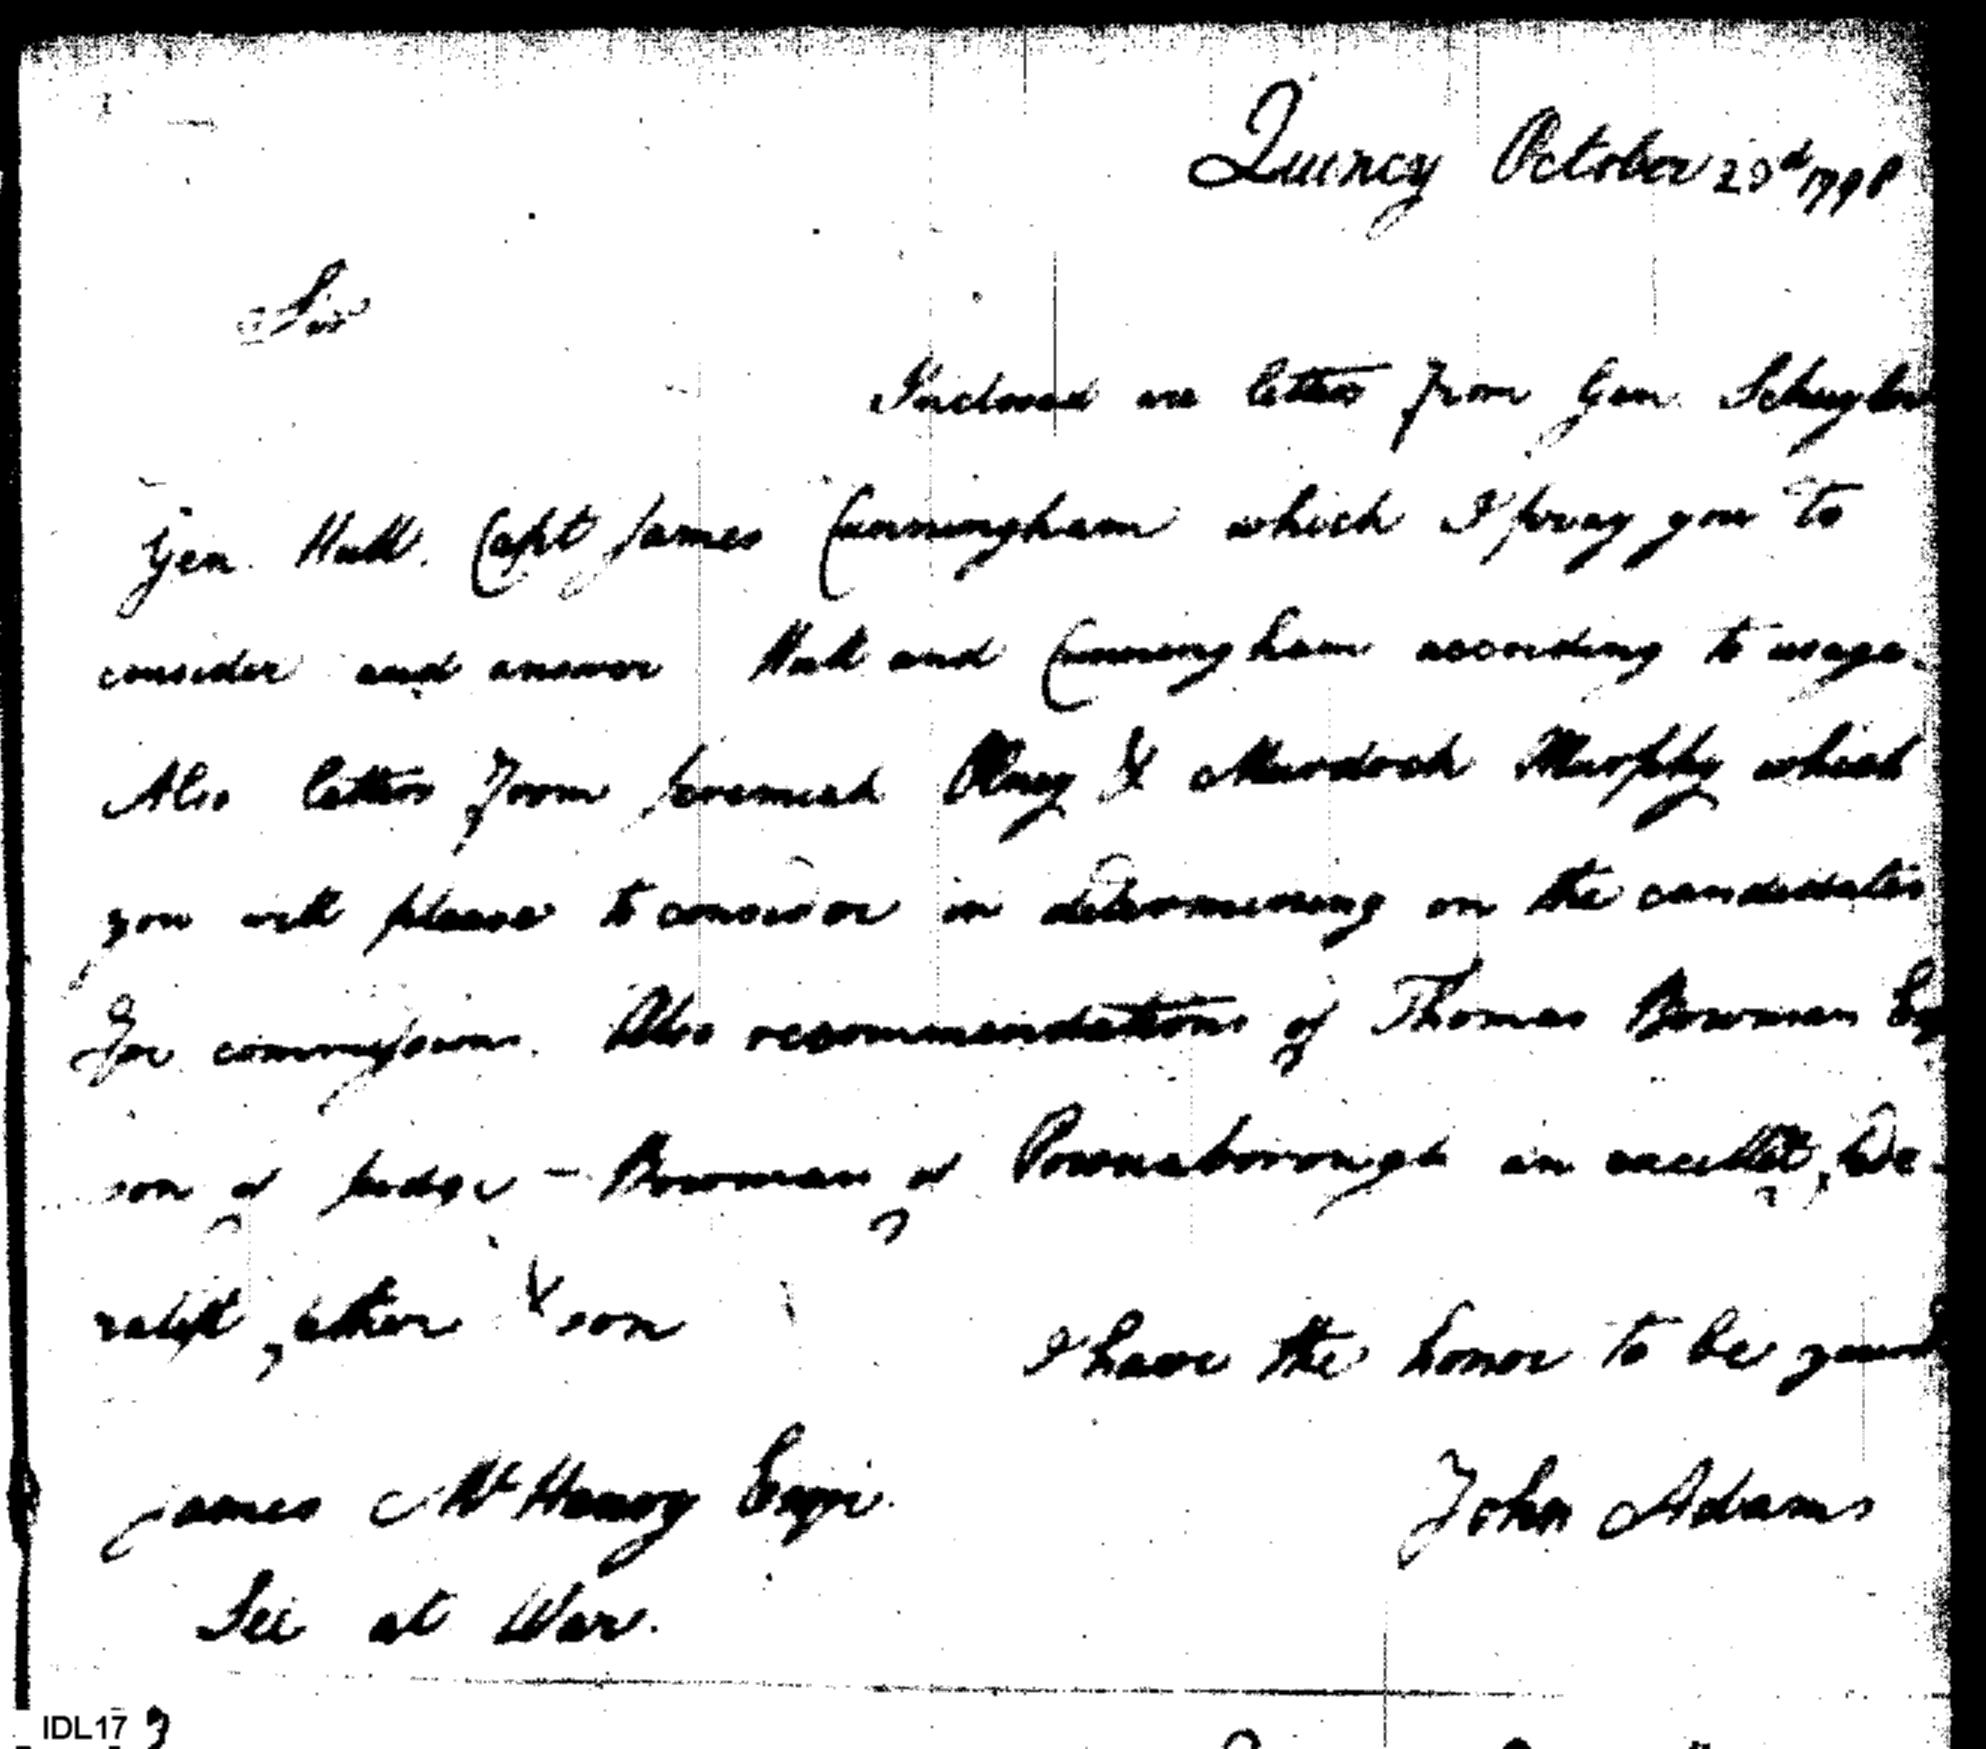 Quincy October 23d 1798
Sir
Inclosed are letters from Gen. Schuyler
Gen. Hull. Capt James Cunningham which I pray you to
consider and answer Hull and Cunningham according to usage.
Also letters from Jeremiah Olney & Murdoch Murphy which
you will please to consider in determining on the candidates
for commissions. Also recommendations of Thomas Bowman Esq
son of Judge - Bowman of Pownaborough an excellent, fede-
ralist, father & son
I have the honor to be
James McHenry Esqr.
John Adams
Sec at War.
IDL17